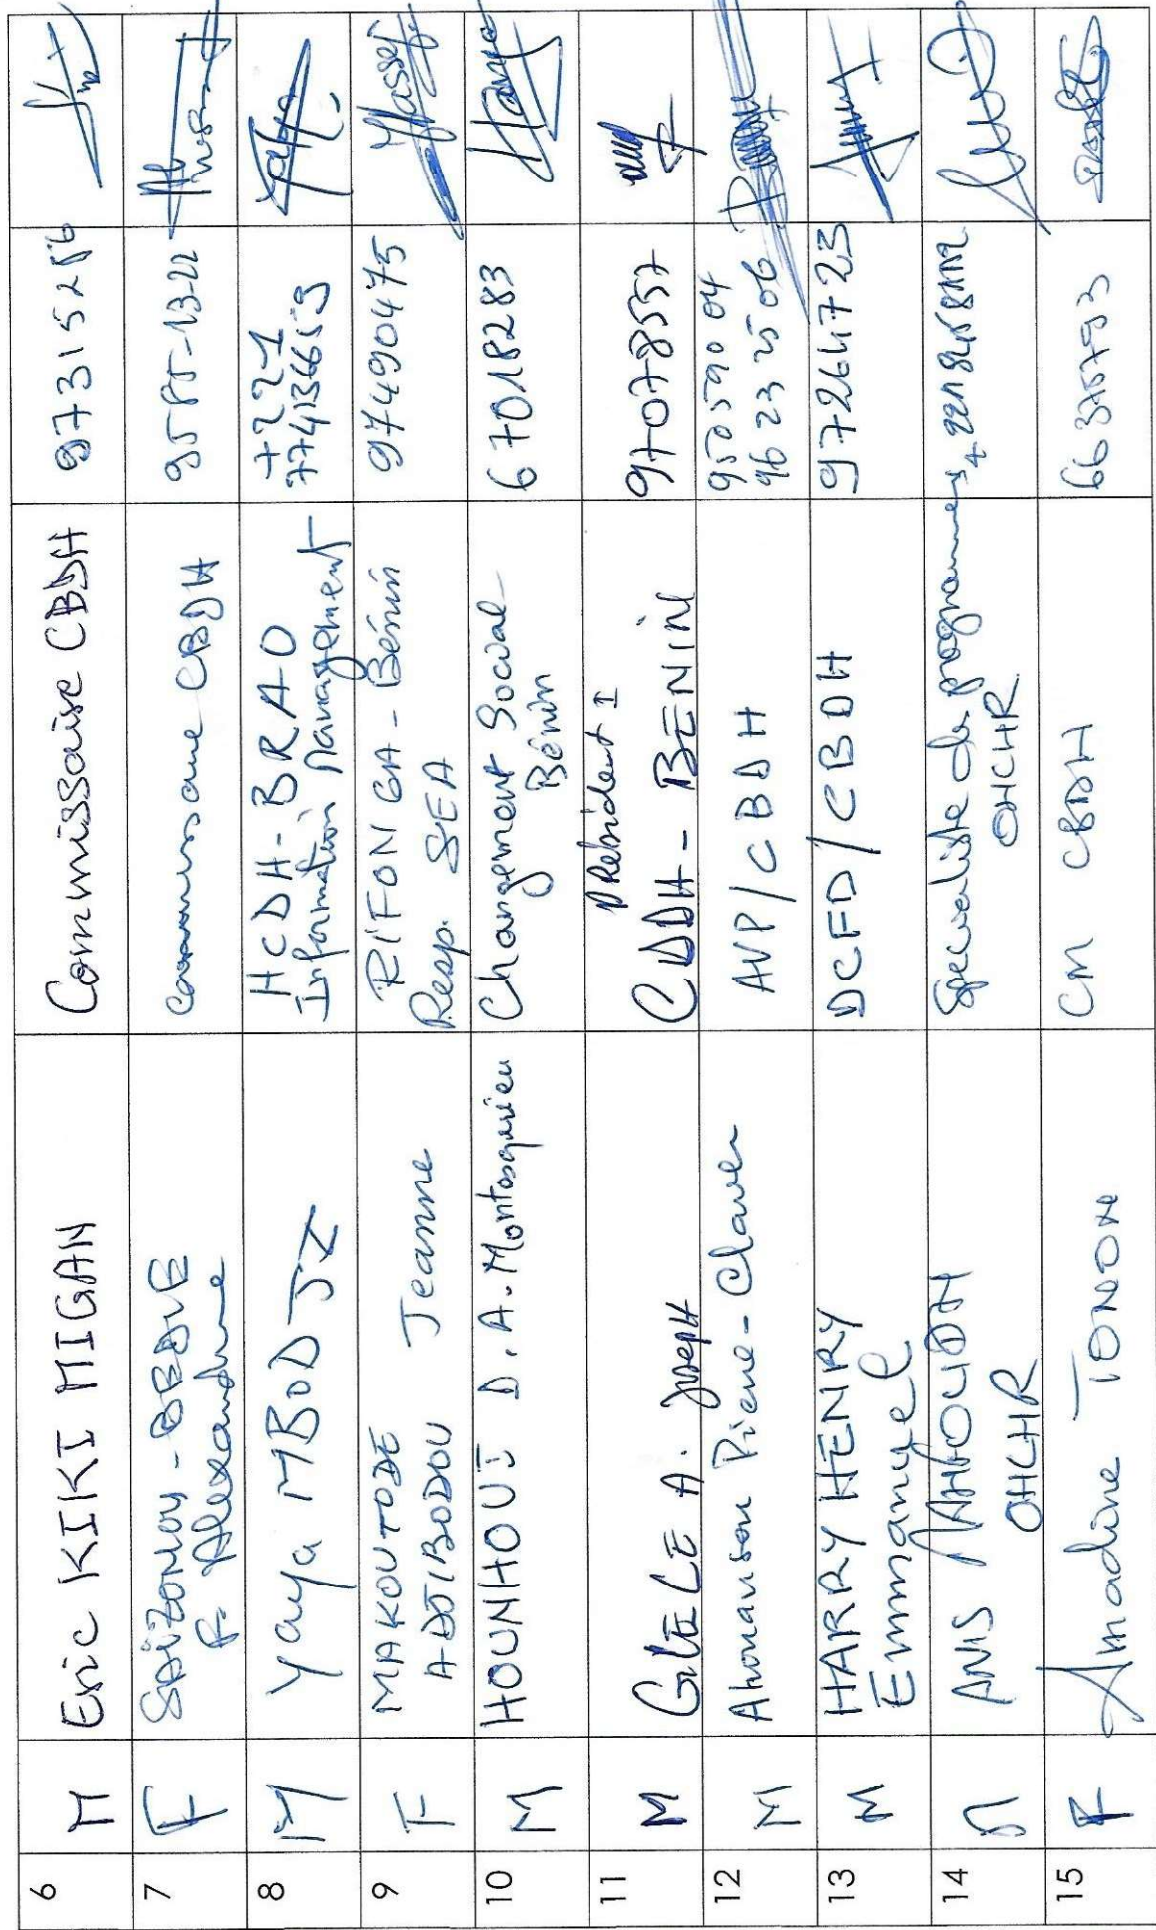 6 M Eric KIKI MIGAN Commissaire CBDH 97315256
7 F
R. Alexandrine
commissaire CBDH 95 85-13-22
8 M Yaya MBODJI HCDH-BRAO
Information Management
+221
774136613
9 F MAKOUTODE
ADJIBODOU Jeanne
RIFONGA-Bénin
Resp. SEA
97490475
10 M HOUNHOUI D.A. Montesquieu Changement Social
Bénin
67018283
11 M A. Joseph
Président I
CADH-BENIN
97078557
12 M Ahouanson Pierre-Claver AVP/CBDH 95055904
96 23 25 06
13 M HARRY HENRY
Emmanuel
DCFD/CBDH 97264723
14 M ANIS MAHOUDH
OHCHR
Spécialiste de programmes
OHCHR
15 F Amadine TONON CM CBDH 66370793